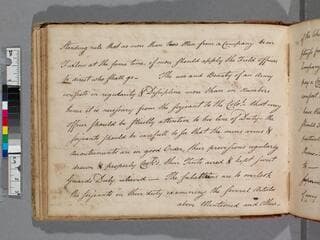 Standing rule that no more than two Men from a Company be on
Furlow at the same time, if more should apply the Field officer
to direct who shall go — The use and Beauty of an army
consists in regularity & Discipline more than in Numbers
hence it is necessary from the serjeant to the Coll. that every
officer should be strictly attentive to his line of Duty. the
serjeants should be carefull to see that the mens arms &
Accoutrements are in good Order, their provisions regularly
drawn & properly Cook'd, their Tents aired & kept
Guards Duly releaved — The are to overlook
the serjeants in their duty examining the several Articles
above Mentioned and Others